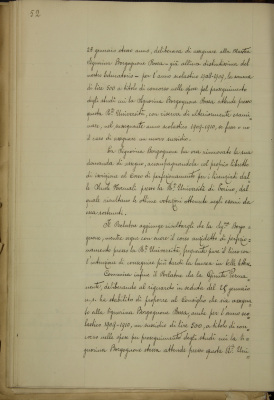 52
28 gennaio stesso anno, deliberava di assegnare alla Maestra
Signorina Borgogno Rosa - già allieva distintissima del
nostro Educatorio - per l'anno scolastico 1908-1909, la somma
di lire 200 a titolo di concorso nelle spese pel proseguimento
degli studi cui la Signorina Borgogno Rosa attende presso
questa Ra Università, con riserva di ulteriormente esami
nare, nel susseguente anno scolastico 1909-1910, se fosse o no
il caso di assegnare un nuovo sussidio.
La Signorina Borgogno ha ora rinnovata la sua
domanda di sussidio, accompagnandola col proprio libretto
di iscrizione al Corso di perfezionamento per i licenziati dal
le Scuole Normali presso la Ra Università di Torino, dal
quale risultano le ottime votazioni ottenute negli esami da
essa sostenuti.
Il Relatore aggiunge inoltre che la Sigra Borgo
gno, mentre segue con amore il corso anzidetto di perfezio
namento presso la Ra Università
l'intenzione di conseguire più tardi la laurea in belle lettere.
Comunica infine il Relatore che la Giunta Perma
nente, deliberando al riguardo in seduta del 25 gennaio
u.s. ha stabilito di proporre al Consiglio che sia assegna
to alla Signorina Borgogno Rosa, anche per l'anno sco
lastico 1909-1910, un sussidio di lire 200, a titolo di con
corso nelle spese pel proseguimento degli studi cui la Si
gnorina Borgogno stessa attende presso questa Ra Uni